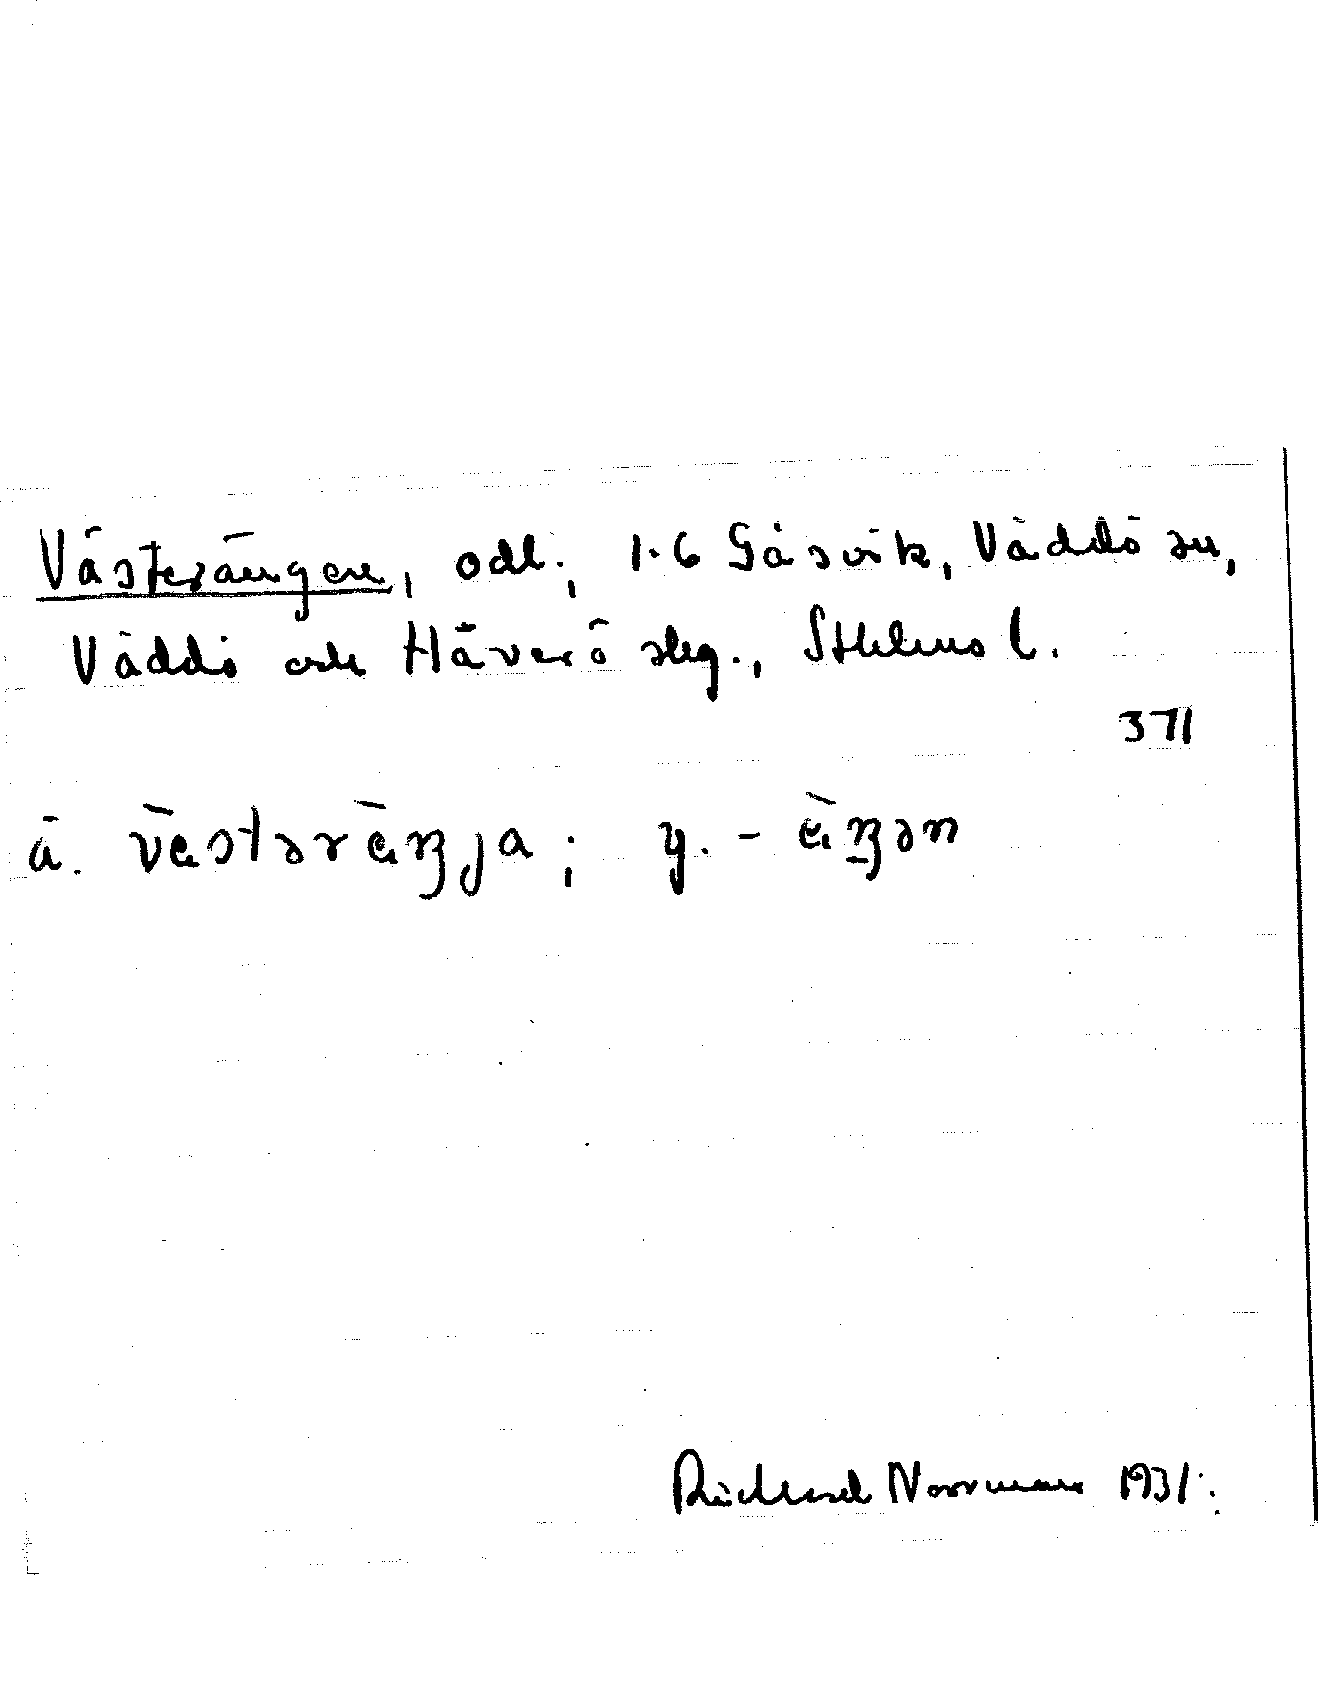 Västerängen, odl., 1-6 Gåsvik, Väddö sn,
Väddö och Häverö slag., Sthlms l.
371
ä. västəräŋja; y. - äŋən
Richard Norrman 1931.